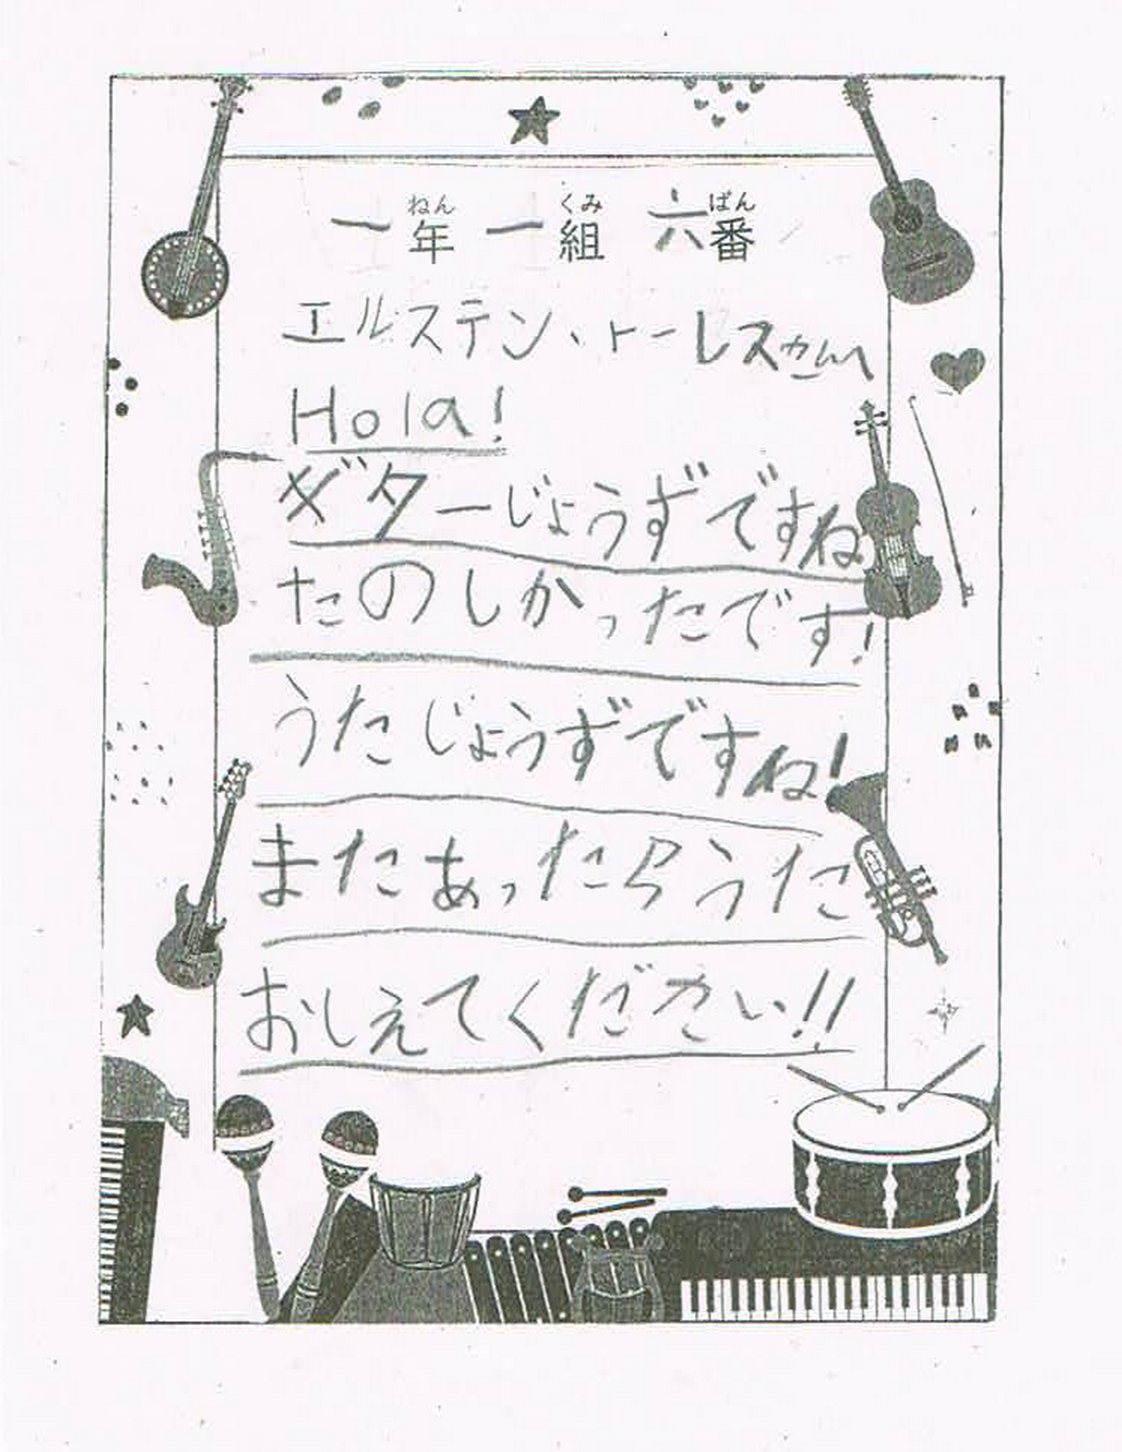 一年一組 六番
エルステン、トーレスさんへ
Hola!
ギターじょうずですね
たのしかったです!
うたじょうずですね!
またあったらうた
おしえてください!!